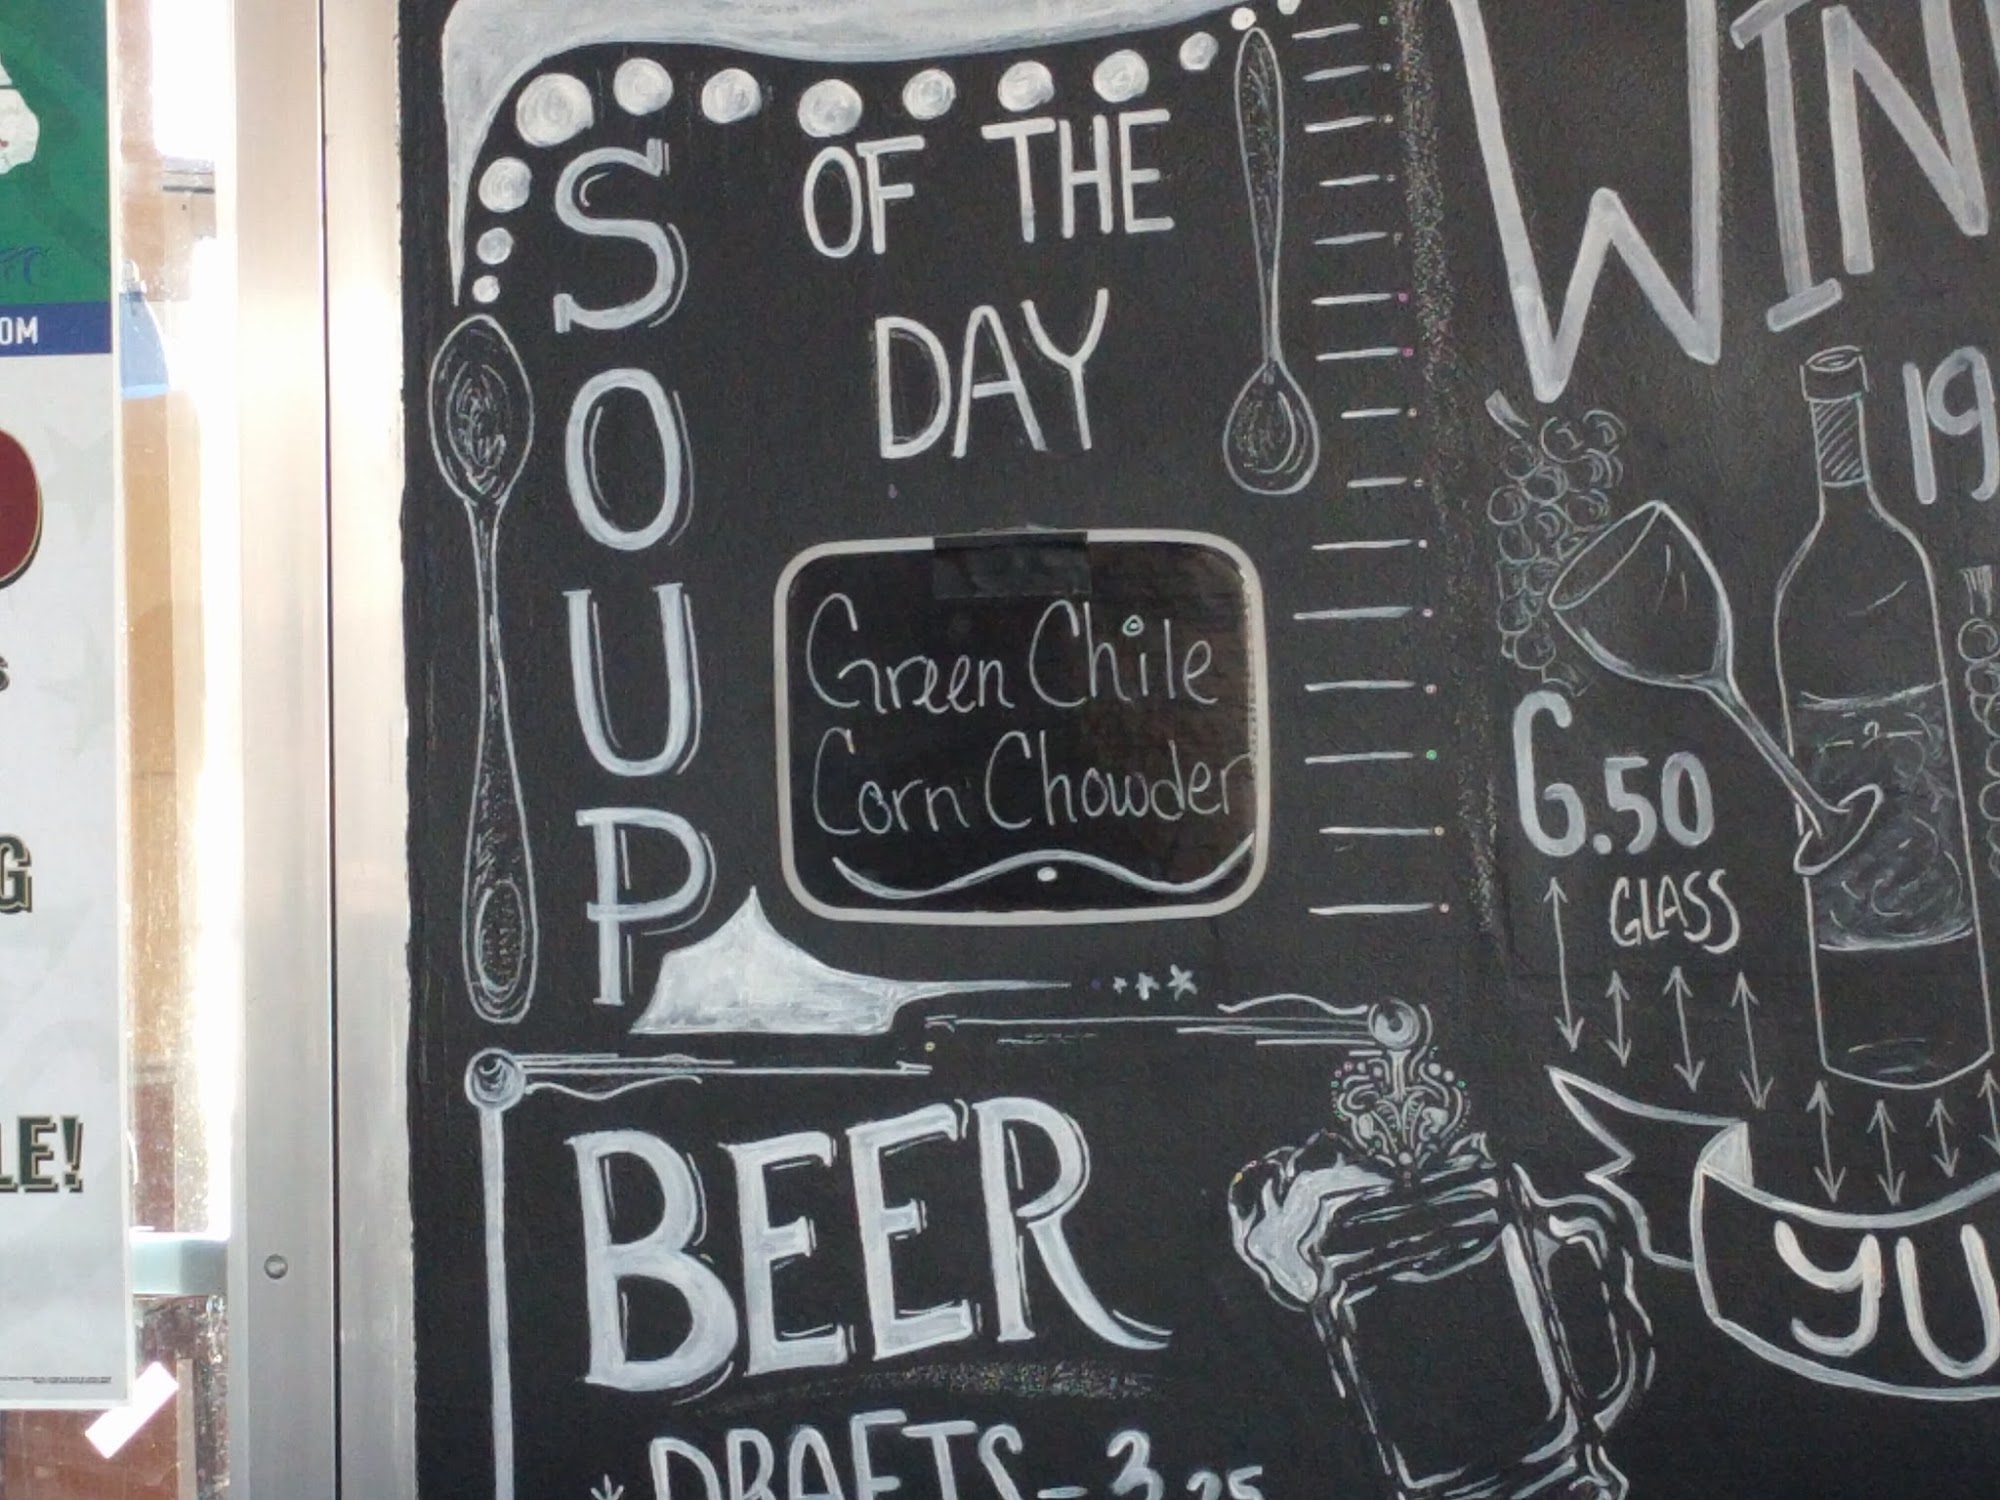 SOUP
OF THE
DAY
Green Chile
Corn Chowder
BEER
*DRAFTS - 3.25
WIN
19
6.50
GLASS
YU
OM
G
LE!